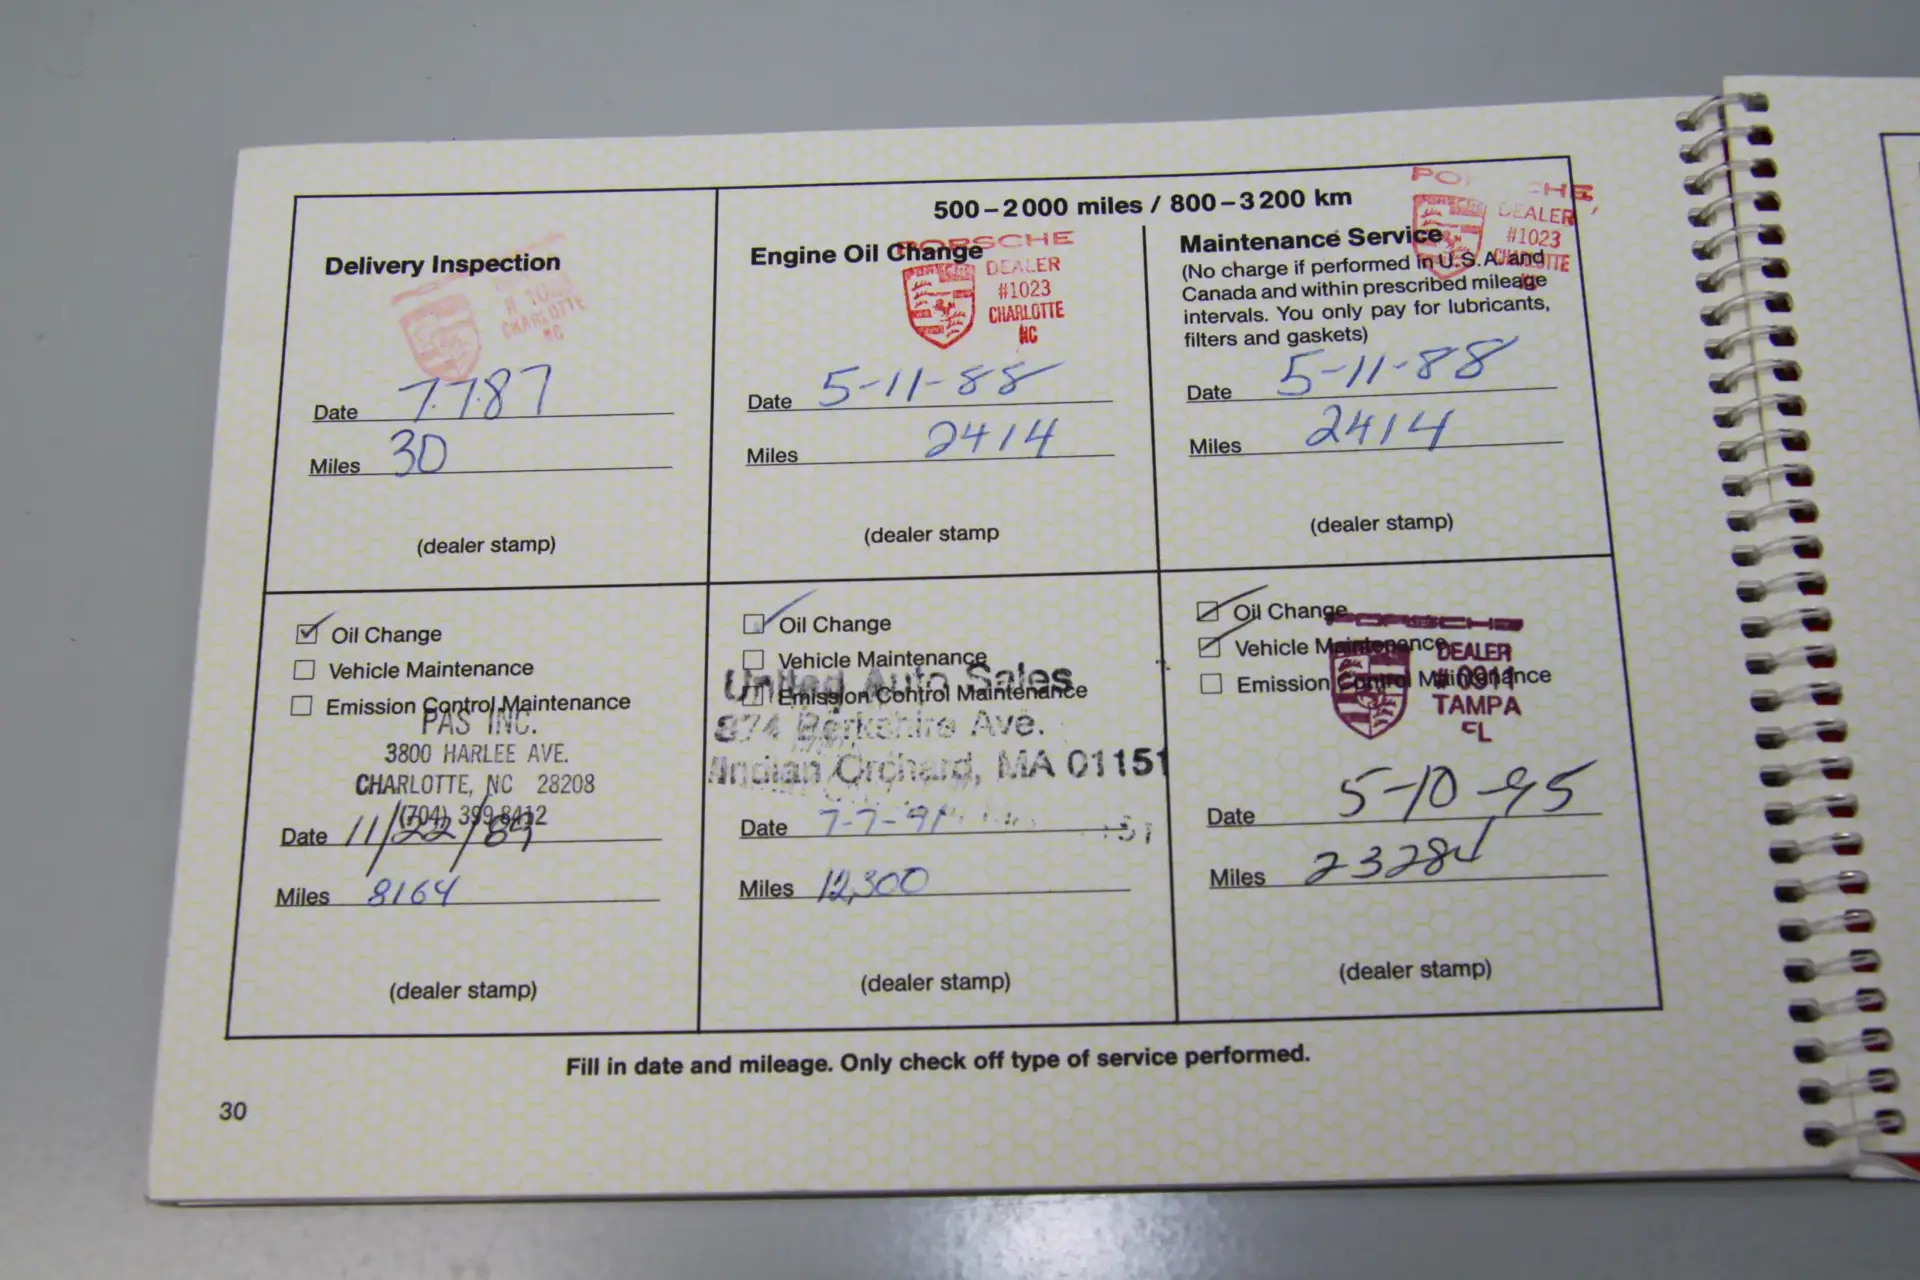 Delivery Inspection
CHARLOTTE
NC
Date 7.7.87
Miles 30
(dealer stamp)
500–2000 miles / 800–3200 km
Engine Oil Change
PORSCHE
DEALER
#1023
CHARLOTTE
NC
Date 5-11-88
Miles 2414
(dealer stamp
Maintenance Service
(No charge if performed in U.S.A. and
Canada and within prescribed mileage
intervals. You only pay for lubricants,
filters and gaskets)
DEALER
#1023
CHARLOTTE
Date 5-11-88
Miles 2414
(dealer stamp)
Oil Change
Vehicle Maintenance
Emission Control Maintenance
PAS INC.
3800 HARLEE AVE.
CHARLOTTE, NC 28208
(704) 399-8412
Date 11/22/89
Miles 8164
(dealer stamp)
Oil Change
Vehicle Maintenance
Emission Control Maintenance
United Auto Sales
874 Berkshire Ave.
Indian Orchard, MA 01151
Date 7-7-91
Miles 12,300
(dealer stamp)
Oil Change
Vehicle Maintenance
Emission Control Maintenance
PORSCHE
DEALER
#0911
TAMPA
FL
Date 5-10-95
Miles 23284
(dealer stamp)
Fill in date and mileage. Only check off type of service performed.
30